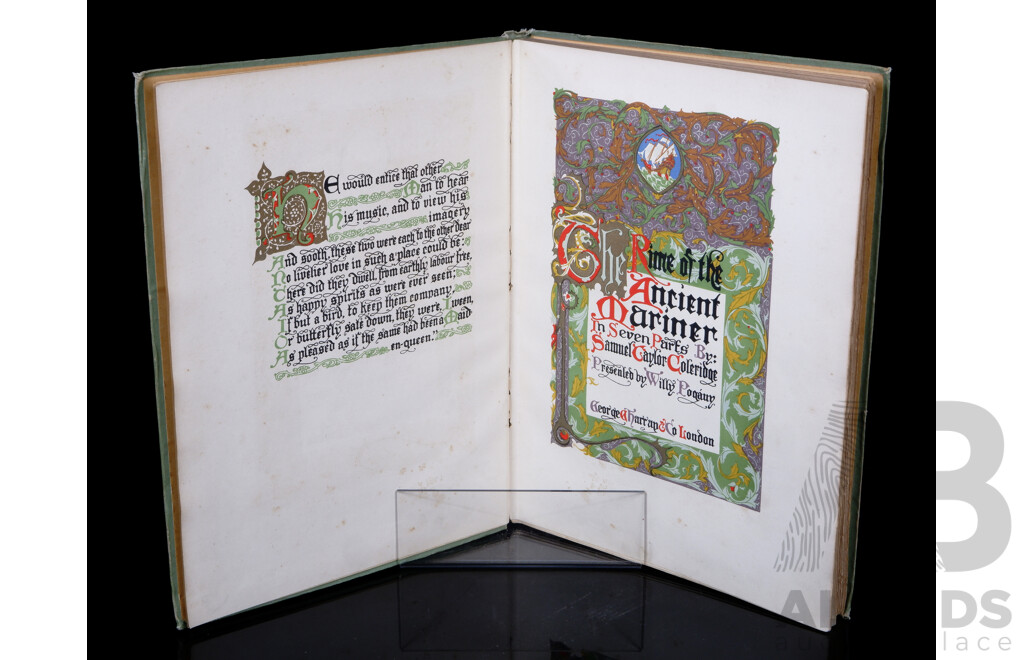 HE would entice that other
Man to hear
His music, and to view his
imagery
And sooth, these two were each to the other dear
No livelier love in such a place could be:
There did they dwell, from earthly labour free,
As happy spirits as were ever seen;
If but a bird, to keep them company,
Or butterfly sate down, they were, I ween,
As pleased as if the same had been a Maid
en-queen."
The Rime of the
Ancient
Mariner
In Seven Parts By:
Samuel Taylor Coleridge
Presented by Willy Pogany
George G Harrap & Co London